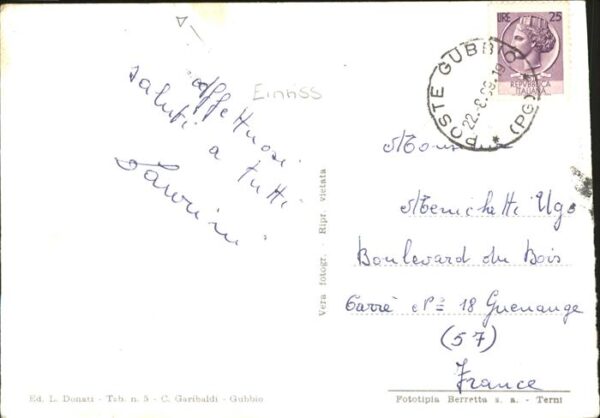 affettuosi
saluti a tutti
Einriss
LIRE 25
REPVBBLICA
ITALIANA
POSTE GUBBIO (PG)
Vera fotogr. - Ripr. vietata
Menichetti Ugo
Boulevard du Bois
Carrè N= 18 Guenange
(57)
France
Ed. L. Donati - Tab. n. 5 - C. Garibaldi - Gubbio
Fototipia Berretta s. a. - Terni